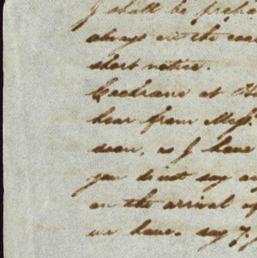 I shall be prepa
always on the
short notice.
Cochrane at H
hear from Mess.
soon, as I have
you do not say
on the arrival of
we have. say 7.